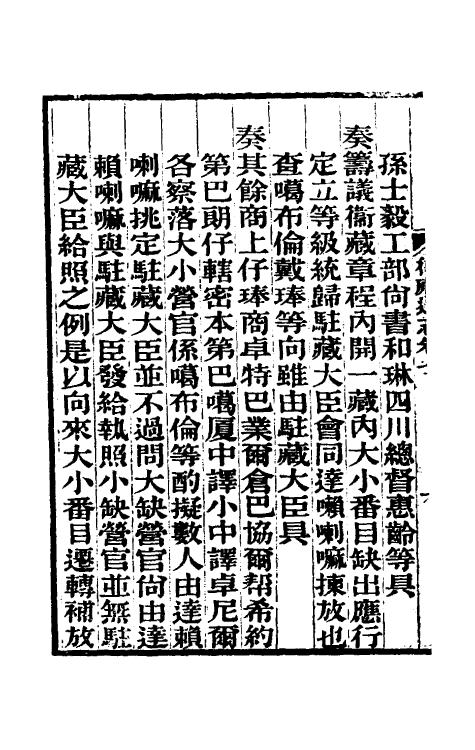 孫士毅工部尙書和琳四川總督惠齡等具
奏籌議衞藏章程內開一藏內大小番目缺出應行
定立等級統歸駐藏大臣會同達嚹喇嘛揀放也
查噶布倫戴琫等向雖由駐藏大臣具
奏其餘商上仔琫商卓特巴業爾倉巴協爾幫希約
第巴朗仔轄密本第巴噶厦中譯小中譯卓尼爾
各察落大小營官係噶布倫等酌擬數人由達賴
喇嘛挑定駐藏大臣並不過問大缺營官尙由達
賴喇嘛與駐藏大臣發給執照小缺營官並無駐
藏大臣給照之例是以向來大小番目遷轉補放